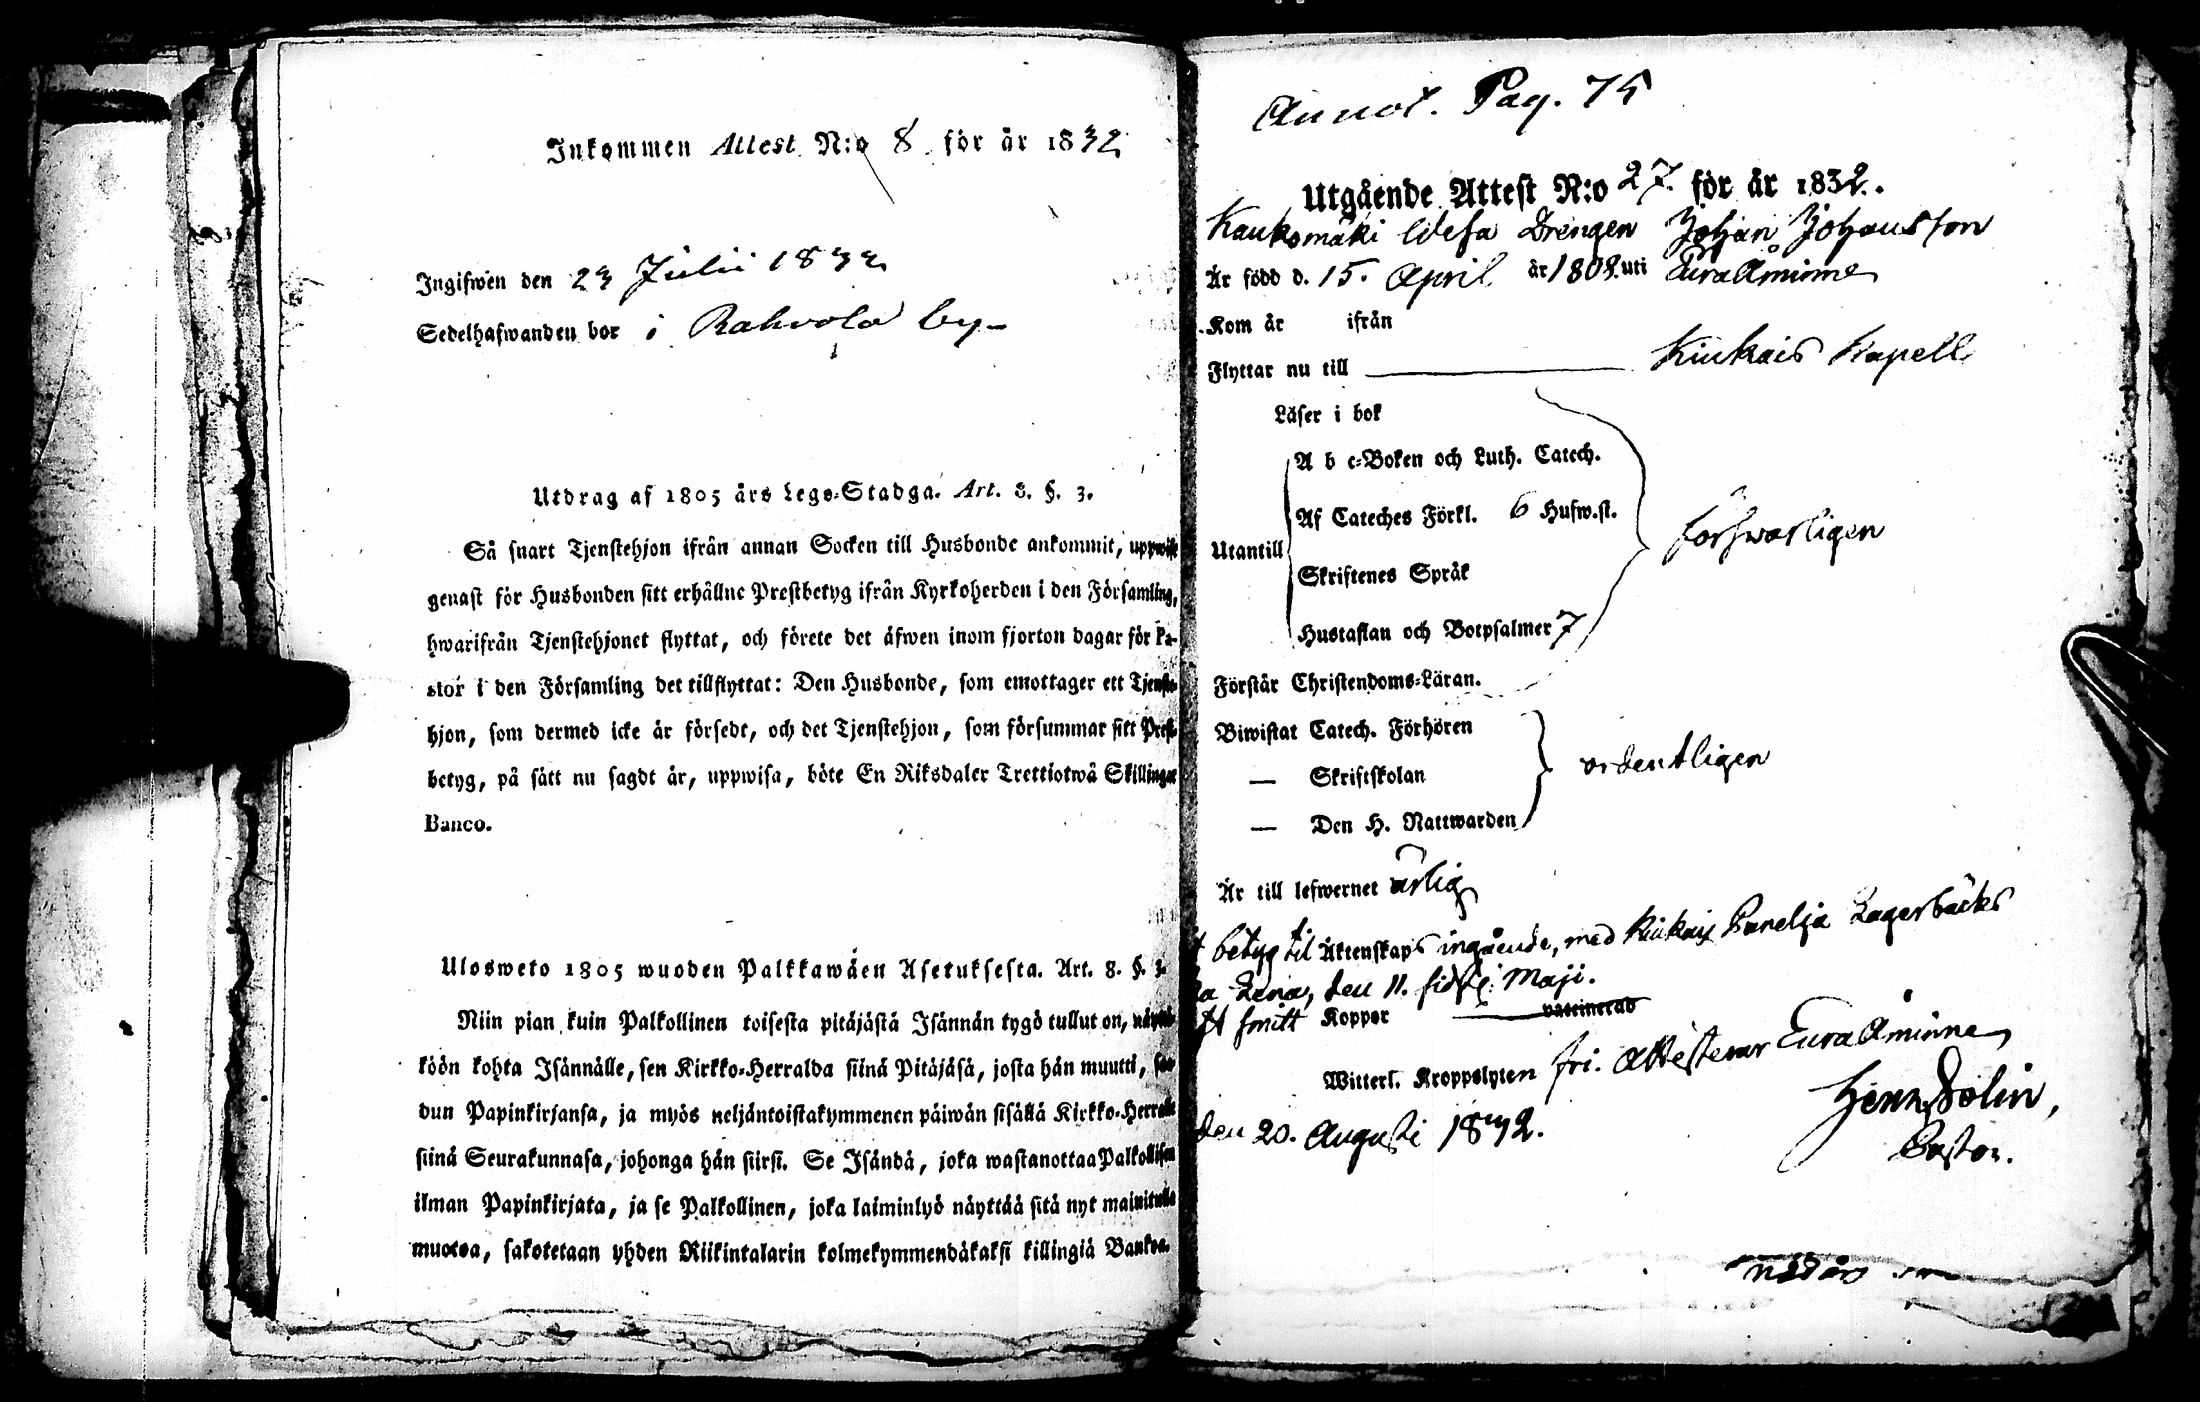 Inkommen Attest N:o 8 för år 1832
Ingifwen den 23 Julii 1832
Sedelhafwanden bor i Rahvola by
Utdrag af 1805 års Lego-Stadga. Art. 8. §. 3.
Så snart Tjenstehjon ifrån annan Socken till Husbonde ankommit, uppwise
genast för Husbonden sitt erhållne Prestbetyg ifrån Kyrkoherden i den Församling,
hwarifrån Tjenstehjonet flyttat, och förete det äfwen inom fjorton dagar för Pa-
stor i den Församling det tillflyttat: Den Husbonde, som emottager ett Tjenste-
hjon, som dermed icke är försedt, och det Tjenstehjon, som försummar sitt Prest-
betyg, på sätt nu sagdt är, uppwisa, böte En Riksdaler Trettiotwå Skillingar
Banco.
Ulosweto 1805 wuoden Palkkawäen Asetuksesta. Art. 8. §. 3.
Niin pian kuin Palkollinen toisesta pitäjästä Isännän tygö tullut on, näyttä-
köön kohta Isännälle, sen Kirkko-Herralda siinä Pitäjäsä, josta hän muutti, saa-
dun Papinkirjansa, ja myös neljäntoistakymmenen päiwän sisällä Kirkko-Herralle
siinä Seurakunnasa, johonga hän siirsi. Se Isändä, joka wastanottaa Palkollisen
ilman Papinkirjata, ja se Palkollinen, joka laiminlyö näyttää sitä nyt mainitulla
muotoa, sakotetaan yhden Riikintalarin kolmekymmendäkaksi killingiä Bankoa.
Annot. Pag. 75
Utgående Attest N:o 27. för år 1832.
Kaukomäki Drengen Johan Johansson
Är född d. 15. April år 1808. uti Eura Åminne
Kom år ifrån
Flyttar nu till Kiukais Kapell
Läser i bok
A b c-Boken och Luth. Catech.
Af Cateches Förkl. 6 Hufw.st.
Utantill
Skriftenes Språk
försvarligen
Hustaflan och Botpsalmer 7
Förstår Christendoms-Läran.
Biwistat Catech. Förhören
— Skriftskolan
ordentligen
— Den H. Nattwarden
Är till lefwernet ärlig
betyg til Äktenskaps ingående, med Kiukais Panelia Lagerbäcks
Lena, den 11. sidstl. Maji.
Koppor vaccinerad
Witterl. Kroppslyten fri. Attesterar Eura Åminne
den 20. Augusti 1832.
Henr. Dolin,
Pastor.